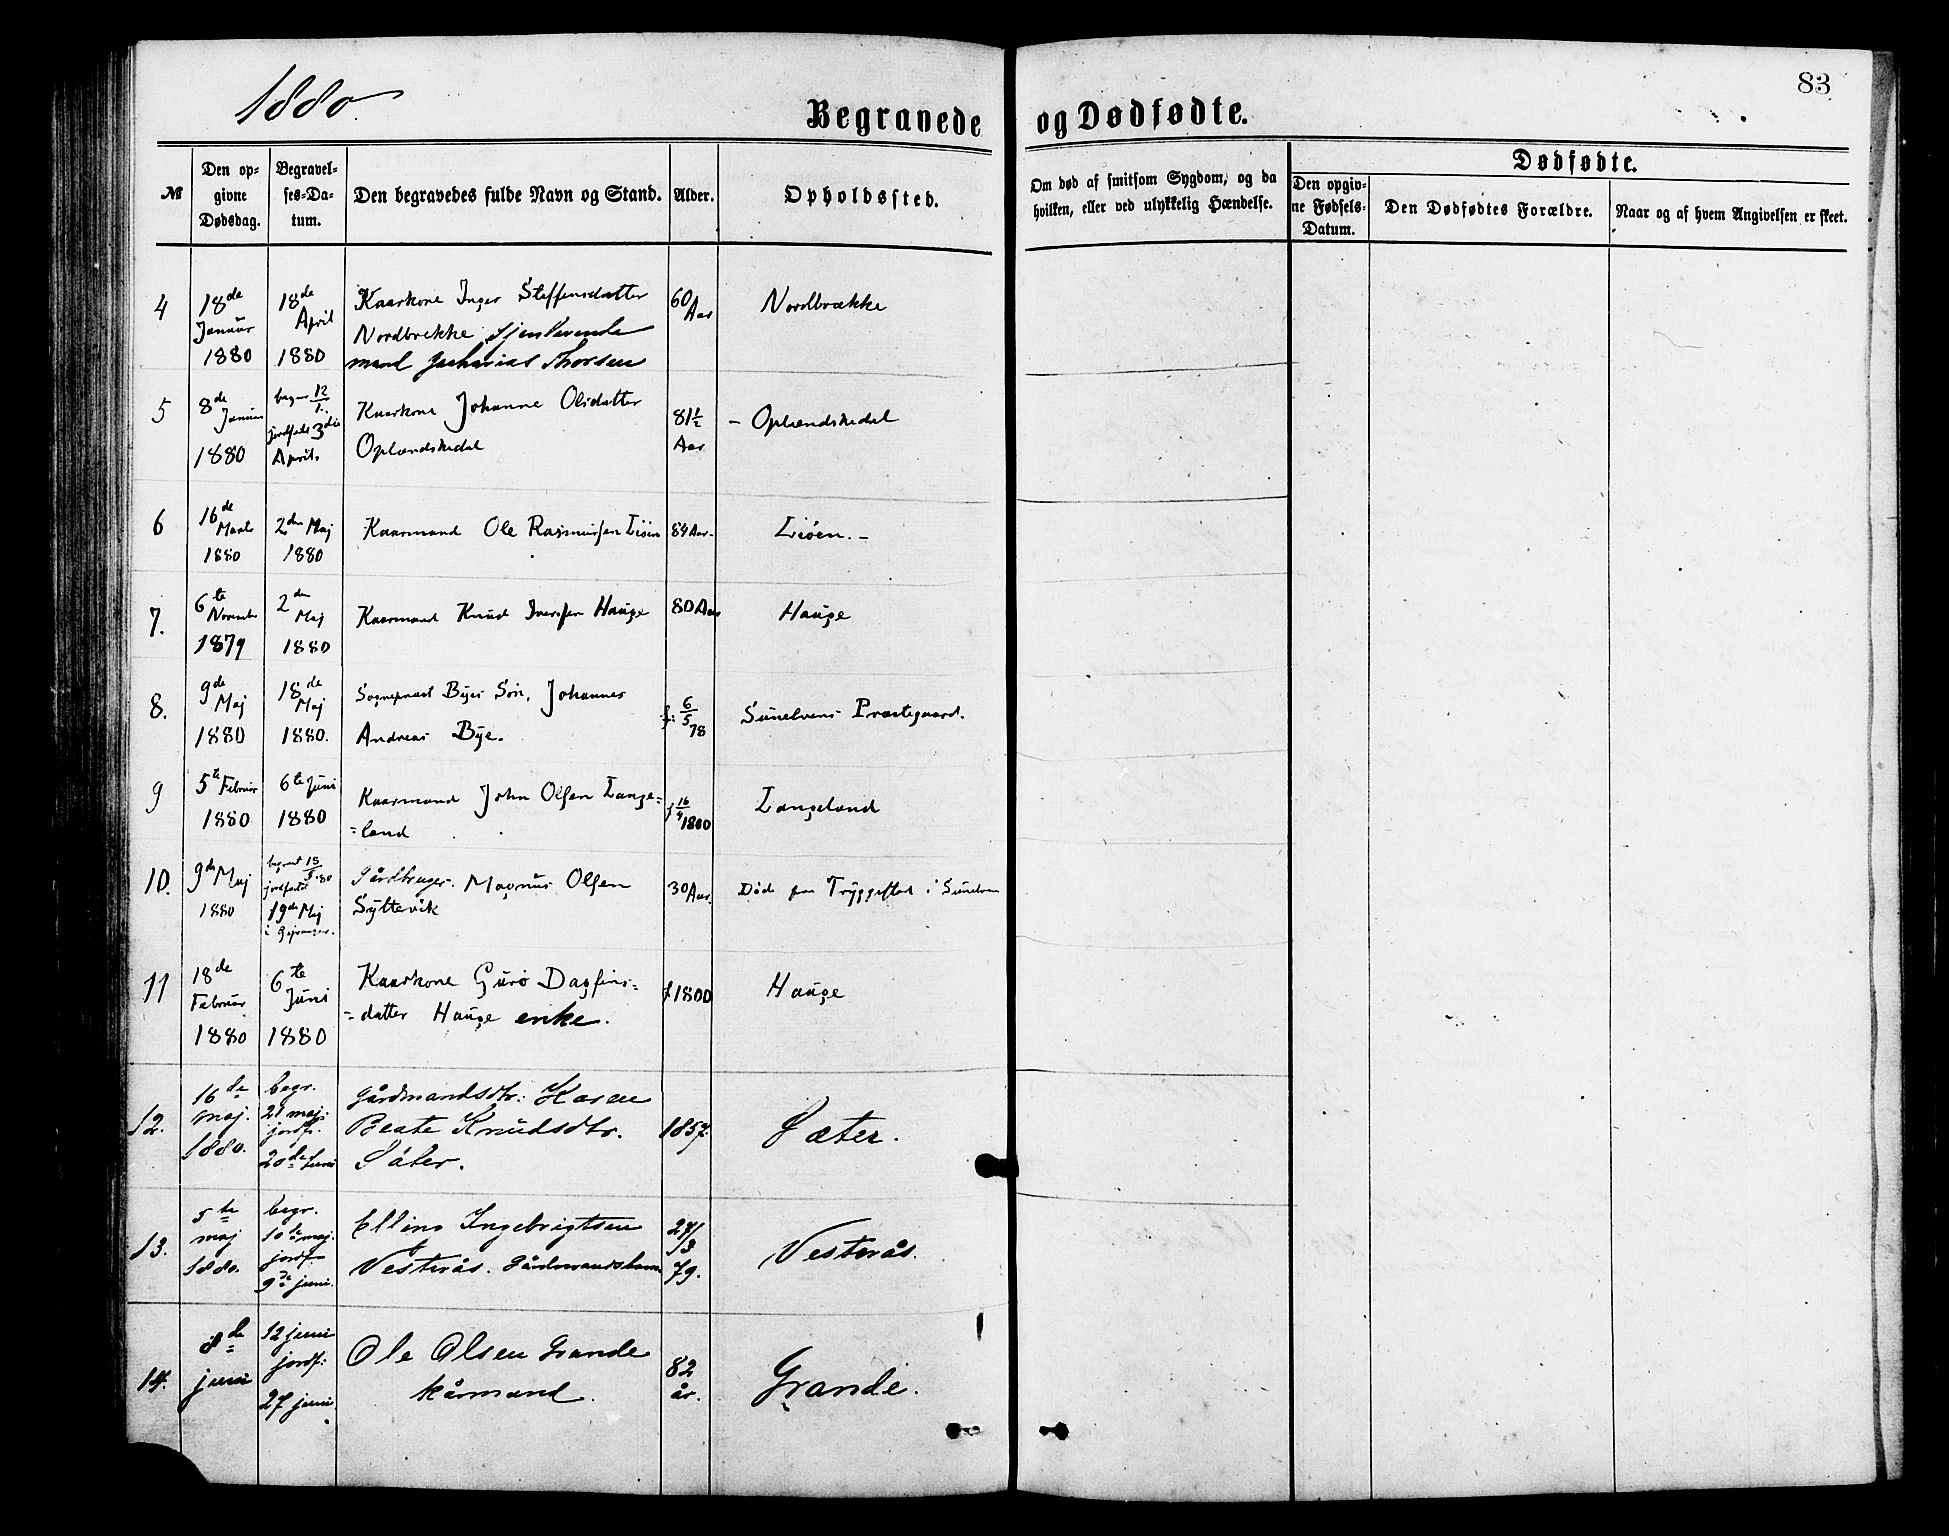 1880.
83
Begravede og Dødfødte.
№
Den op-
givne
Dødsdag.
Begravel-
ses-Da-
tum.
Den begravedes fulde Navn og Stand.
Alder.
Opholdssted.
Om død af smitsom Sygdom, og da
hvilken, eller ved ulykkelig Hændelse.
Dødfødte.
Den opgiv-
ne Fødsels-
Datum.
Den Dødfødtes Forældre.
Naar og af hvem Angivelsen er skeet.
4
18de
Januar
1880
18de
April
1880
Kaarkone Inger Steffensdatter
Nordbrække, Gjenlevende
mand Zacharias Thorsen
60
Aar
Nordbrække
5
8de
Januar
1880
begr. 12/1.
jordfæst 3die
April.
Kaarkone Johanne Olsdatter
Oplændskedal
81½
Aar
- Oplændskedal
6
16de
Marts
1880
2den Maj
1880
Kaarmand Ole Rasmussen Liøen
84 Aar.
Liøen. -
7.
6te
Novembr
1879
2den
Maj
1880
Kaarmand Knud Iversen Hauge
80 Aar
Hauge
8.
9de
Maj
1880
18de
Maj
1880.
Sognepræst Byes Søn, Johannes
Andreas Bye.
f: 6/5 78
Sunelvens Præstegaard.
9
5te Februar
1880
6te Juni
1880
Kaarmand John Olsen Lange=
=land
f 16/4 1800
Langeland
10.
9de Maj
1880
begravet 15/5 80
jordfæstet
19de Maj
i Gejranger.
Gårdbruger. Magnus Olsen
Syltevik
30 Aar.
Død paa Tryggestad i Sunelven
11
18de
Februar
1880
6te
Juni
1880
Kaarkone Guro Dagfins=
=datter Hauge enke.
f 1800
Hauge
12.
16de
maj.
1880.
begr.
21 maj.
jordf.
20de Juni
gårdmandsdtr: Karen
Beate Knudsdtr.
Säter.
1857.
Sæter.
13.
5te
maj
1880.
begr.
10de maj.
jordf.
9de juni.
Elling Ingebrigtsen
Vesterås. Gårdmandsbarn
27/3
79.
Vesterås.
14.
8de
juni
12 juni
jordf:
27 juni
Ole Olsen Grande
kårmand.
82
år.
Grande.